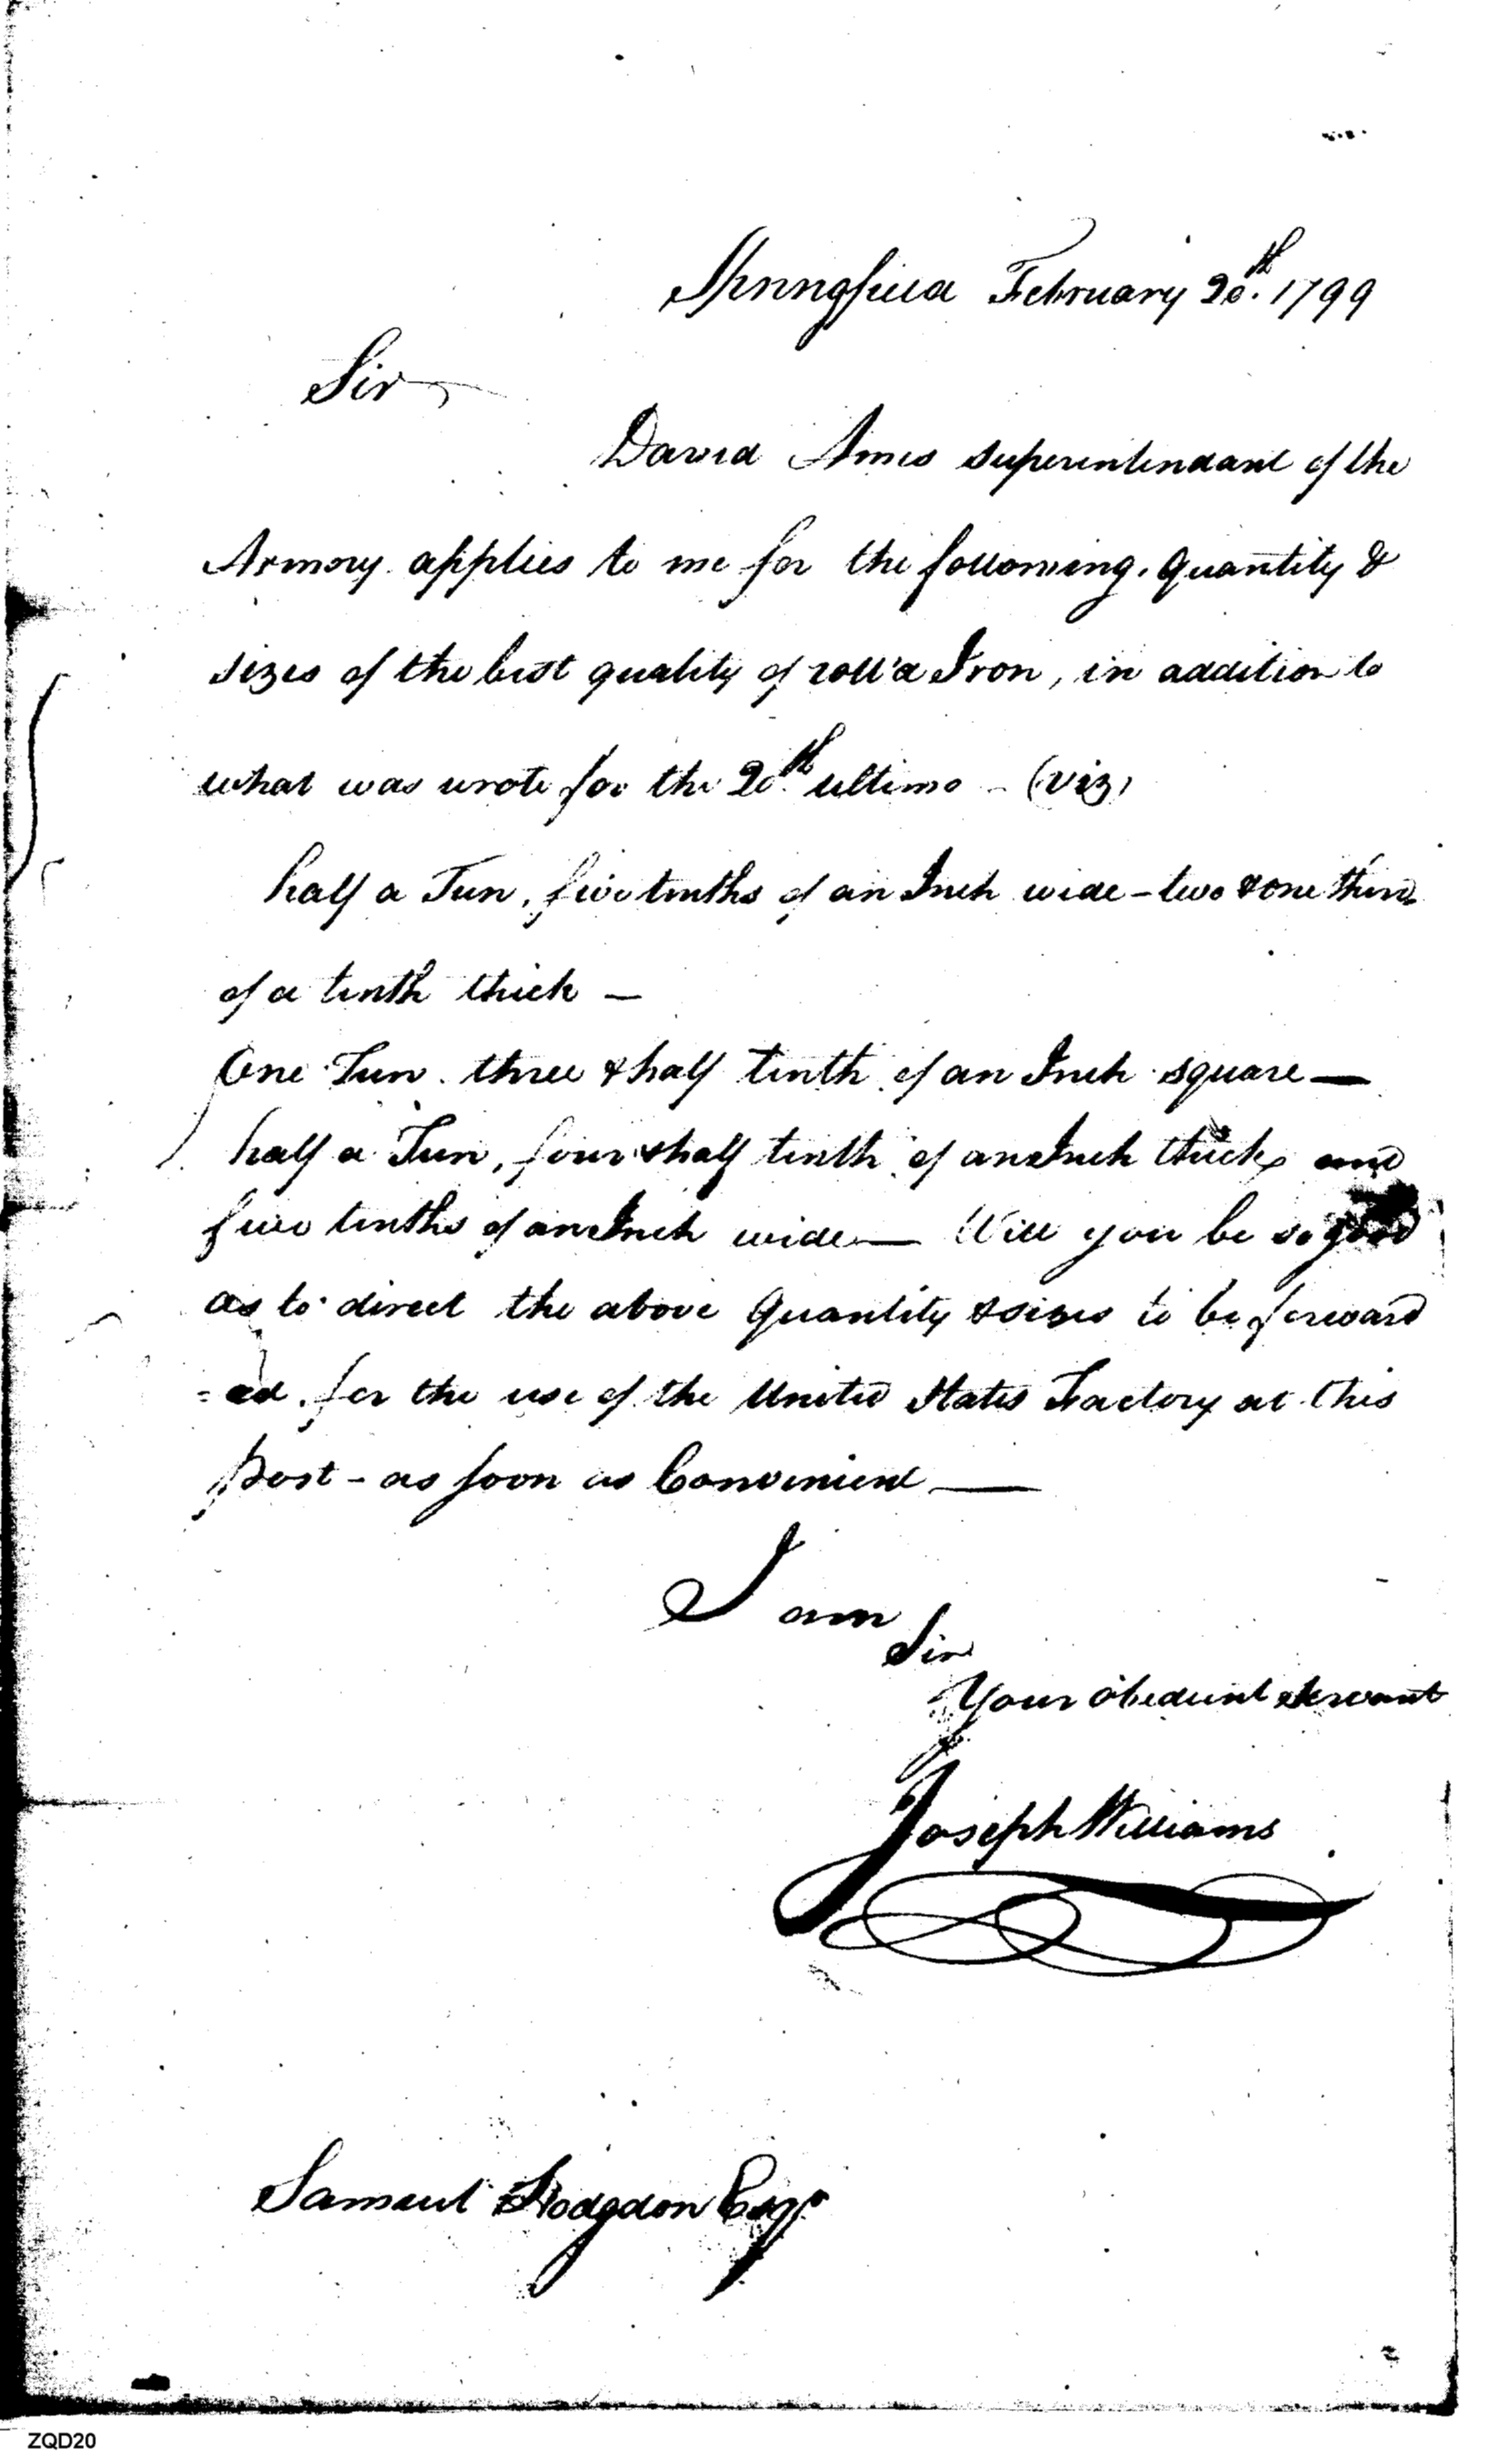 Springfield February 20th. 1799
Sir
David Ames superintendant of the
Armory applies to me for the following, quantity &
sizes of the best quality of roll'd Iron, in addition to
what was wrote for the 20th ultimo - (viz)
half a Tun, five tenths of an Inch wide - two & one third
of a tenth thick -
One Tun. three & half tenth of an Inch square -
half a Tun, four & half tenth of an Inch thick, and
five tenths of an Inch wide - Will you be so good
as to direct the above Quantity & sizes to be forward
=ed, for the use of the United States Factory at this
post - as soon as Convenient -
I am
Sir
Your obedient Servant
Joseph Williams
Samuel Hodgdon Esqr
ZQD20